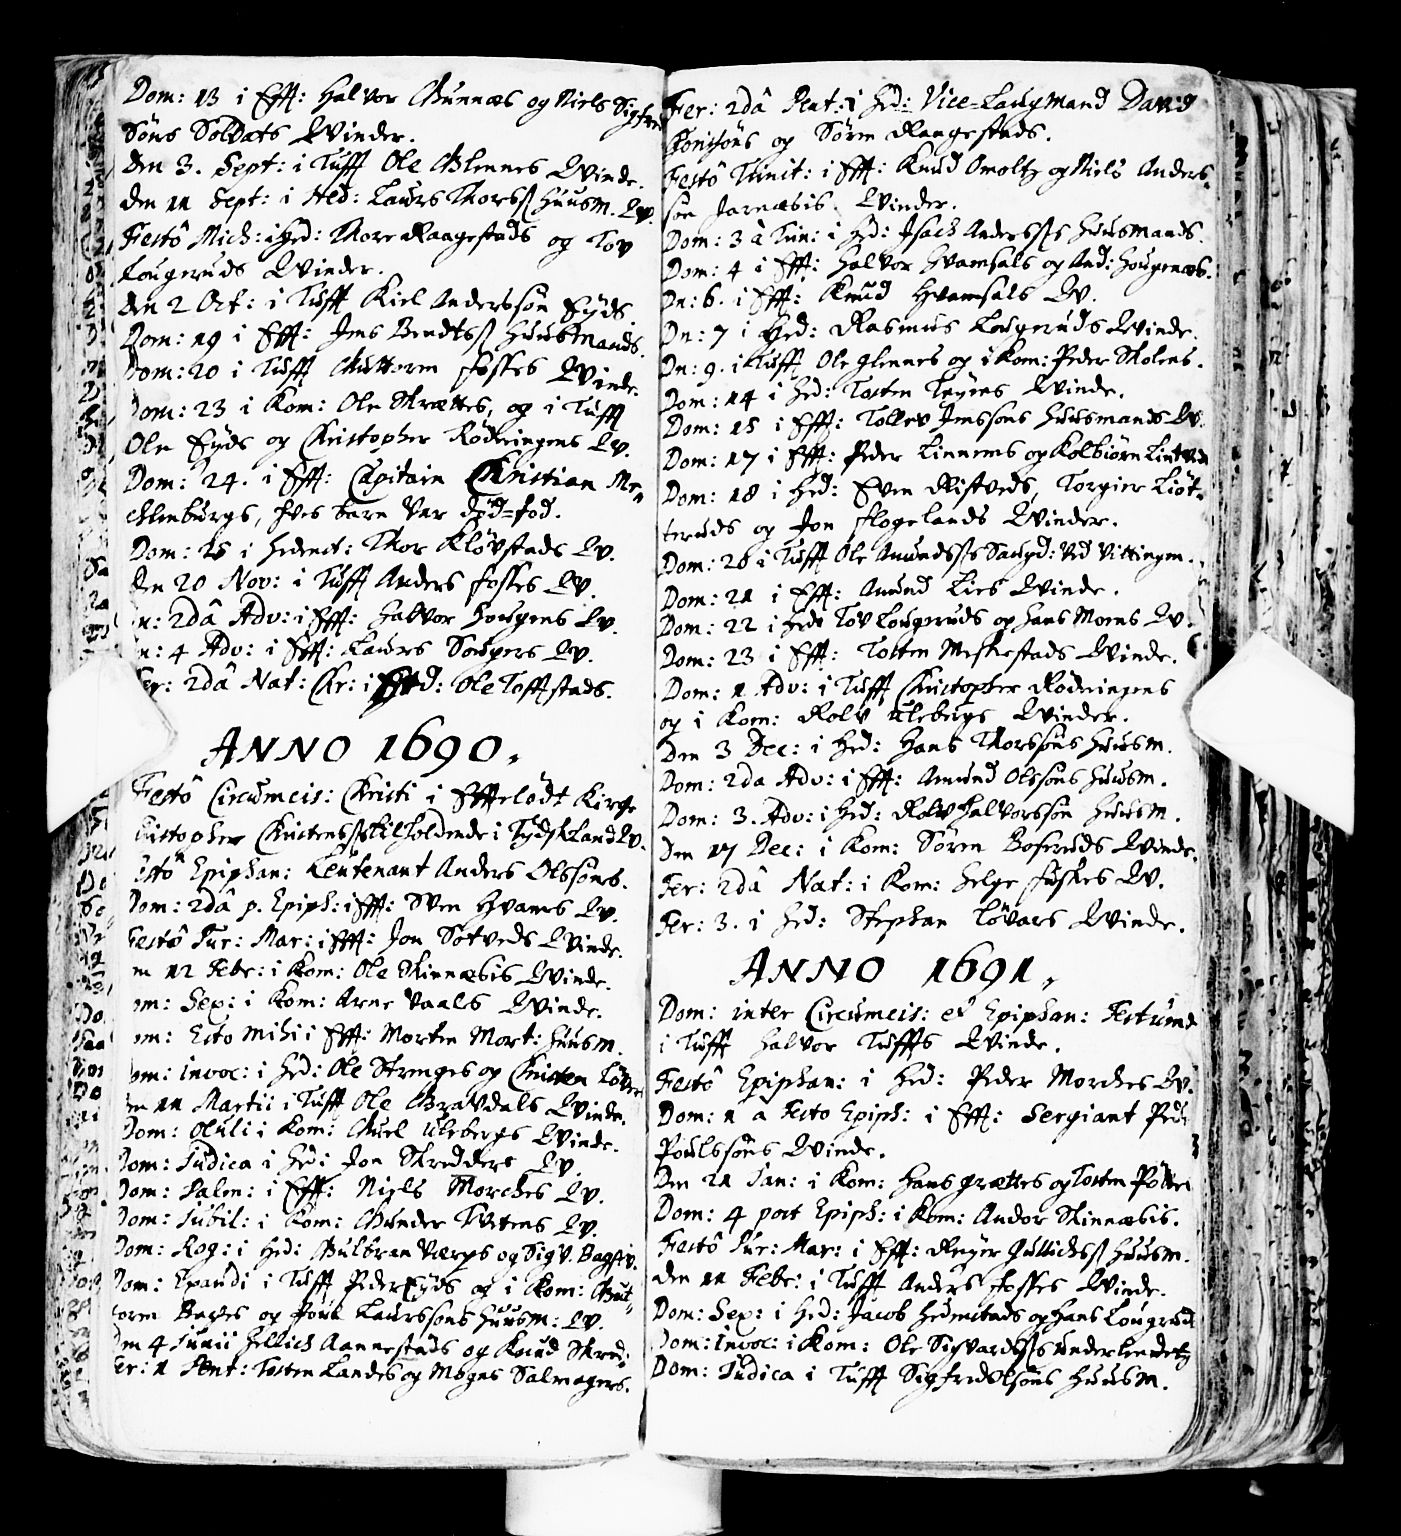 Dom: 13 i Efft: Halvor Gunnæs og Niels Sigfred
Søns Soldats Qvinder.
Den 3. Sept: i Tufft Ole Glennes Qvinde.
den 11 Sept: i Hed: Laurs Thorss: Huusm. Qv.
Festô Mich: i Hed: Thore Raagestads og Tov
Lougeruds Qvinder.
Den 2 Oct: i Tufft Kiel Anderssøn Eyds
Dom: 19 i Efft: Jens Bendtss: Huusmands.
Dom: 20 i Tufft Guttorm Fosses Qvinde.
Dom: 23 i Kom: Ole Skrættes, og i Tufft
Ole Eyds og Christopher Rødningens Qv.
Dom: 24. i Efft: Capitain Christian Me-
chlenburgs, hves barn var død-fød.
Dom: 25 i Hedenst: Thor Kløvstads Qv.
Den 20 Nov: i Tufft Anders Fosses Qv.
n: 2dâ Adv: i Efft: Halvor Hougens Qv.
n: 4 Adv: i Efft: Laurs Sougers Qv.
Fer: 2dâ Nat: Chr: i Hed: Ole Tofftstads.
ANNO 1690.
Festô Circumcis: Christi i Efftelødt Kirge
Christopher Christenss: tilholdende i Tydskland Qv.
Festô Epiphan: Leutenant Anders Olssøns.
Dom: 2dâ p. Epiph: i Efft: Sven Hvams Qv.
Festô Pur: Mar: i Efft: Jon Sotveds Qvinde.
en 12 Febr: i Kom: Ole Skinnæbis Qvinde.
om: Sex: i Kom: Arne Vaals Qvinde.
om: Esto mihi i Efft: Morten Mort: Huusm.
om: Invoc: i Hed: Ole Strenges og Christen Løver
en 11 Martii i Tufft Ole Gravdals Qvinde.
Dom: Oculi i Kom: Guel Ulebergs Qvinde.
Dom: Judica i Hed: Jon Skredders Qv.
Dom: Palm: i Efft: Niels Morches Qv.
Dom: Jubil: i Kom: Gunder Tvetens Qv.
Dom: Rog: i Hed: Gulbran Værps og Sigv. Bagstv.
Dom: Exaudi i Tufft Peder Eyds og i Kom: Gut-
torm Baches og Poul Laurssøns Huusm: Qv.
en 4 Junii Jellich Aannestads og Knud Skred:
Fer: 1 Pent: Tosten Landes og Mogns Salmagers.
Fer: 2dâ Pent: i Hed: Vice-Laugmand David
og Søren Raagestads.
Festô Trinit: i Efft: Knud Omoltz og Niels Anders-
søn Jarnæbis Qvinder.
Dom: 3 â Trin: i Hed: Isach Anderss:s Huusmands.
Dom: 4 i Efft: Halvor Hvamsals og And: Hougenæs.
Dn: 6. i Efft: Knud Hvamsals Qv.
Dn: 7 i Hed: Rasmus Lougeruds Qvinde.
Dn: 9. i Tufft Ole Glennes og i Kom: Peder Skolens.
Dom: 14 i Hed: Tosten Teyens Qvinde.
Dom: 15 i Efft: Tollev Jenssøns Huusmands Qv.
Dom: 17 i Efft: Peder Linnems og Kolbiørn Lintved
Dom: 18 i Hed: Even Ristveds, Torgier Liøt-
teruds og Jon Flogelands Qvinder.
Dom: 20 i Tufft Ole Amundss:s Saugd: ved Vittingen.
Dom: 21 i Efft: Amund Lies Qvinde.
Dom: 22 i Hed: Tov Lougeruds og Hans Moens Qv.
Dom: 23 i Efft: Tosten Meskestads Qvinde.
Dom: 1 Adv: i Tufft Christopher Rødningens
og i Kom: Rolv Ulebergs Qvinder.
Den 3 Dec: i Hed: Hans Thorssøns Huusm.
Dom: 2da Adv: i Efft: Amund Olssøns Huusm.
Dom: 3. Adv: i Hed: Rolv Halvorssøn Huusm.
Den 17 Dec: i Kom: Søren Boseruds Qvinde.
Fer: 2dâ Nat: i Kom: Helge Fuskes Qv.
Fer: 3. i Hed: Stephan Løvars Qvinde.
ANNO 1691.
Dom: inter Circumcis: et Epiphan: Festum
i Tufft Halvor Tuffts Qvinde.
Festô Epiphan: i Hed: Peder Morches Qv.
Dom: 1 a Festo Epiph: i Efft: Sergiant Peder
Poulssøns Qvinde.
Den 21 Jan: i Kom: Hans Grættes og Tosten Potte
Dom: 4 post Epiph: i Kom: Andor Skinnæbis.
Festô Pur: Mar: i Efft: Reyer Gullichss: Huusm.
Den 11 Febr: i Tufft Anders Fosses Qvinde.
Dom: Sex: i Hed: Jacob Hedenstads og Hans Lougrud
Dom: Invoc: i Kom: Ole Sigvardss:s
Dom: Judica i Tufft Sigfred Olsøns Huusm.